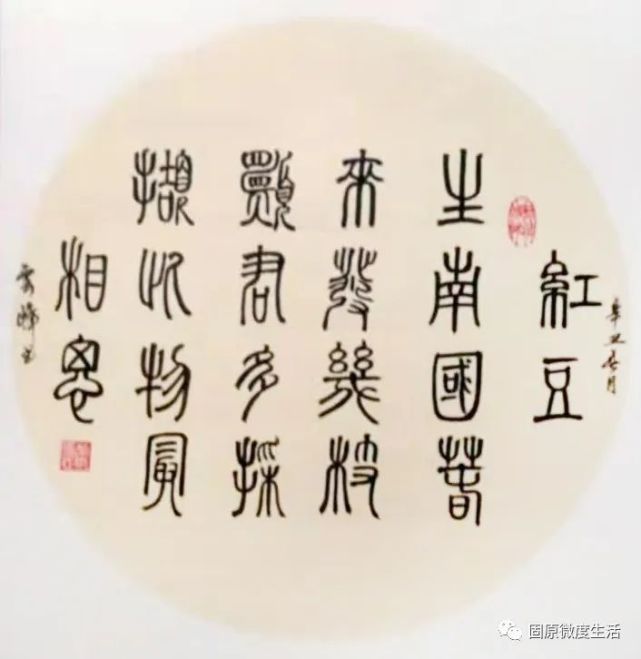 辛丑
紅豆
生南國春
來發幾枝
願君多採
擷此物最
相思
固原微度生活